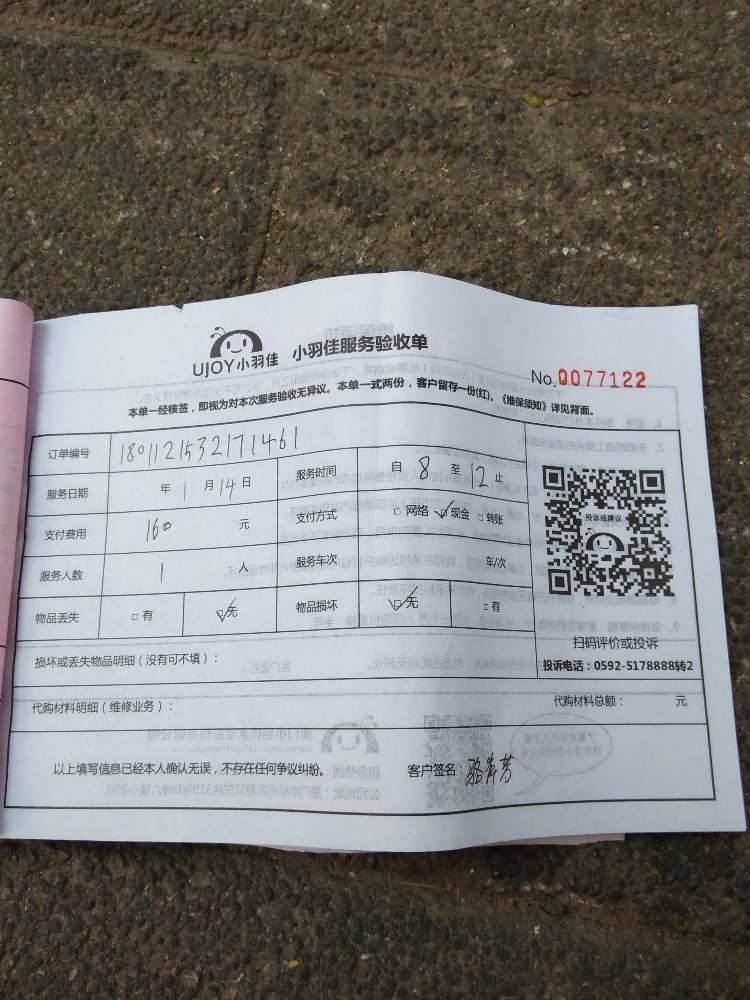 UJOY小羽佳 小羽佳服务验收单
No.0077122
本单一经核签，即视为对本次服务验收无异议。本单一式两份，客户留存一份(红)。《维保须知》详见背面。
订单编号 1801121532171461
服务日期 年 1 月 14 日 服务时间 自 8 至 12 止
支付费用 160 元 支付方式 □ 网络 ☑ 现金 □ 转账
服务人数 1 人 服务车次 车/次
物品丢失 □ 有 ☑ 无 物品损坏 ☑ 无 □ 有
投诉或建议
扫码评价或投诉
投诉电话：0592-5178888转2
损坏或丢失物品明细（没有可不填）：
代购材料明细（维修业务）： 代购材料总额： 元
以上填写信息已经本人确认无误，不存在任何争议纠纷。 客户签名：